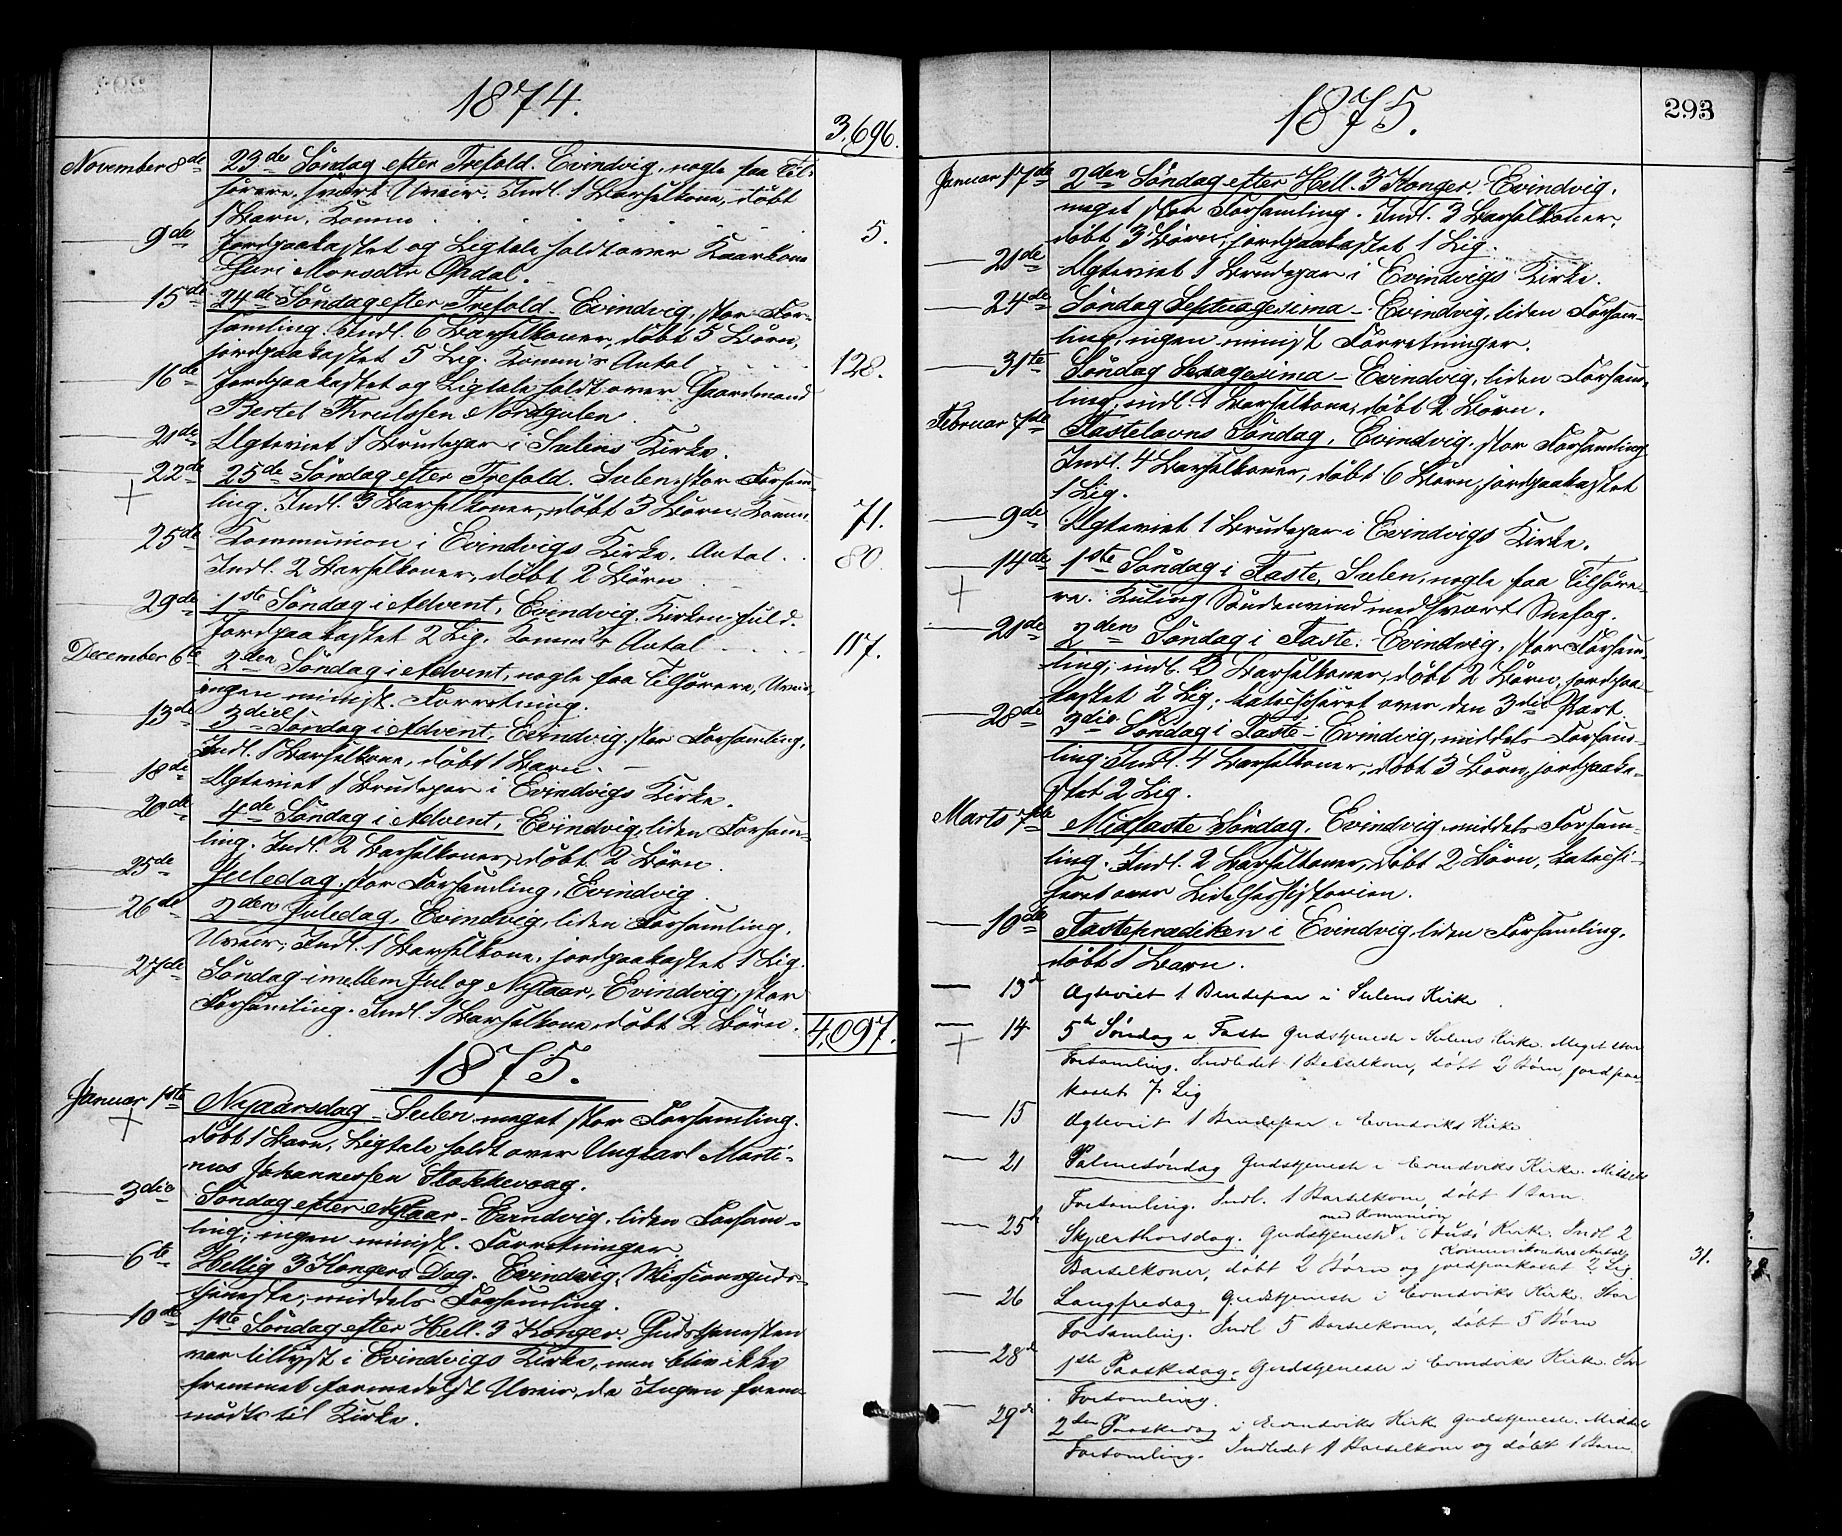 1874.
3,696.
November 8de 23de Søndag efter Trefold. Evindvig, nogle faa Til-
hørere, svært Uveir. Indl. 1 Barselkone, døbt
1 Barn, Komm. 5.
9de Jordpaakastet og Ligtale holdt over Kaarkone
Guri Monsdtr Opdal.
15de 24de Søndag efter Trefold. Evindvig, stor For-
samling. Indl. 6 Barselkoner, døbt 5 Børn,
jordpaakastet 5 Lig. Komm's Antal 128.
16de Jordpaakastet og Ligtale holdt over Gaardmand
Bertel Thrulssen Nordgulen.
21de Ægteviet 1 Brudepar i Sulens Kirke.
22de 25de Søndag efter Trefold. Sulen, stor Forsam-
+ ling. Indl. 3 Barselkoner, døbt 3 Børn. Komm. 71.
25de Kommunion i Evindvigs Kirke. Antal 80.
Indl. 2 Barselkoner, døbt 2 Børn
29de 1ste Søndag i Advent, Evindvig. Kirken fuld.
Jordpaakastet 2 Lig. Komm's Antal 117.
December 6te 2den Søndag i Advent, nogle faa Tilhørere, Uveir,
ingen minist. Forretning.
13de 3die Søndag i Advent, Evindvig, stor Forsamling,
Indl. 1 Barselkone, døbt 1 Barn.
18de Ægteviet 1 Brudepar i Evindvigs Kirke.
20de 4de Søndag i Advent, Evindvig, liden Forsam-
ling. Indl. 2 Barselkoner, døbt 2 Børn
25de Juledag, stor Forsamling, Evindvig.
26de 2den Juledag, Evindvig, liden Forsamling,
Uveir, Indl. 1 Barselkone, jordpaakastet 1 Lig.
27de Søndag imellem Jul og Nytaar, Evindvig, stor
Forsamling. Indl. 1 Barselkone, døbt 2 Børn.
4,097.
1875.
Januar 1ste Nyaarsdag - Sulen meget stor Forsamling.
+ døbt 1 Barn, Ligtale holdt over Ungkarl Marti-
nus Johannessen Stokkevaag.
3die Søndag efter Nytaar - Evindvig, liden Forsam-
ling; ingen minist. Forretninger.
6te Hellig 3 Kongers Dag. Evindvig, Missionsguds-
tjeneste; middels Forsamling.
10de 1ste Søndag efter Hell. 3 Konger. Gudstjenesten
var tillyst i Evindvigs Kirke, men blev ikke
fremmet formedelst Uveir, da Ingen frem-
mødte til Kirke.
1875.
293
Januar 17de 2den Søndag efter Hell. 3 Konger. Evindvig,
meget stor Forsamling. Indl. 3 Barselkoner,
døbt 3 Børn, jordpaakastet 1 Lig.
21de Ægteviet 1 Brudepar i Evindvigs Kirke.
24de Søndag Septuagesima - Evindvig, liden Forsam-
ling, ingen minist. Forretninger.
31te Søndag Sexagesima - Evindvig, liden Forsam-
ling, indl. 1 Barselkone, døbt 2 Børn.
Februar 7de Fastelavns Søndag, Evindvig, stor Forsamling
Indl. 4 Barselkoner, døbt 6 Børn, jordpaakastet
1 Lig.
9de Ægteviet 1 Brudepar i Evindvigs Kirke.
14de 1ste Søndag i Faste, Sulen, nogle faa Tilhøre-
+ re. Kuling Søndenvind med svært Snefog.
21de 2den Søndag i Faste. Evindvig, stor Forsam-
ling, indl. 2 Barselkoner, døbt 2 Børn, jordpaa-
kastet 2 Lig; katechiseret over den 3die Part
28de 3die Søndag i Faste - Evindvig, middels Forsam-
ling. Indl. 4 Barselkoner, døbt 3 Børn, jordpaaka-
stet 2 Lig.
Marts 7de Midfaste Søndag, Evindvig, middels Forsam-
ling. Indl. 2 Barselkoner, døbt 2 Børn, katechi-
seret over Lidelseshistorien.
10de Fasteprædiken i Evindvig, liden Forsamling,
døbt 1 Barn.
13d Ægteviet 1 Brudepar i Sulens Kirke.
14 5te Søndag i Faste Gudstjeneste i Sulens Kirke. Meget stor
+ Forsamling. Indledet 1 Barselkone, døbt 2 Børn, jordpaa-
kastet 7 Lig
15 Ægteviet 1 Brudepar i Evindviks Kirke
21 Palmesøndag Gudstjeneste i Evindviks Kirke. Middels
Forsamling. Indl. 1 Barselkone, døbt 1 Barn.
med Kommunion
25d Skjærthorsdag. Gudstjeneste i Husø Kirke. Indl 2
Kommunikanters Antal
Barselkoner, døbt 2 Børn og jordpaakastet 2 Lig. 31.
26 Langfredag. Gudstjeneste i Evindviks Kirke. Stor
Forsamling. Indl 5 Barselkoner, døbt 5 Børn
28d 1ste Paaskedag. Gudstjeneste i Evindviks Kirke. Stor
Forsamling.
29d 2den Paaskedag i Evindviks Kirke Gudstjeneste. Middels
Forsamling. Indledet 1 Barselkone og døbt 1 Barn.